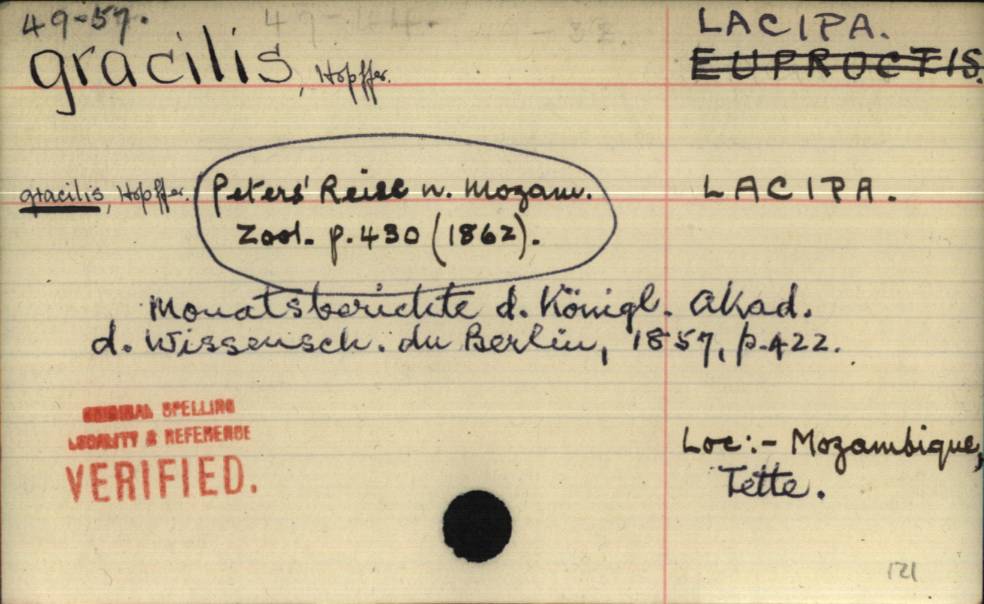 49-57.
LACIPA.
gracilis, Hopffer.
EUPROCTIS.
gracilis, Hopffer.
Peters' Reise n. Mozam.
LACIPA.
Zool. p.430 (1862).
Monatsberichte d. Königl. Akad.
d. Wissensch. du Berlin, 1857, p.422.
ORIGINAL SPELLING
LOCALITY & REFERENCE
VERIFIED.
Loc:- Mozambique,
Tette.
121